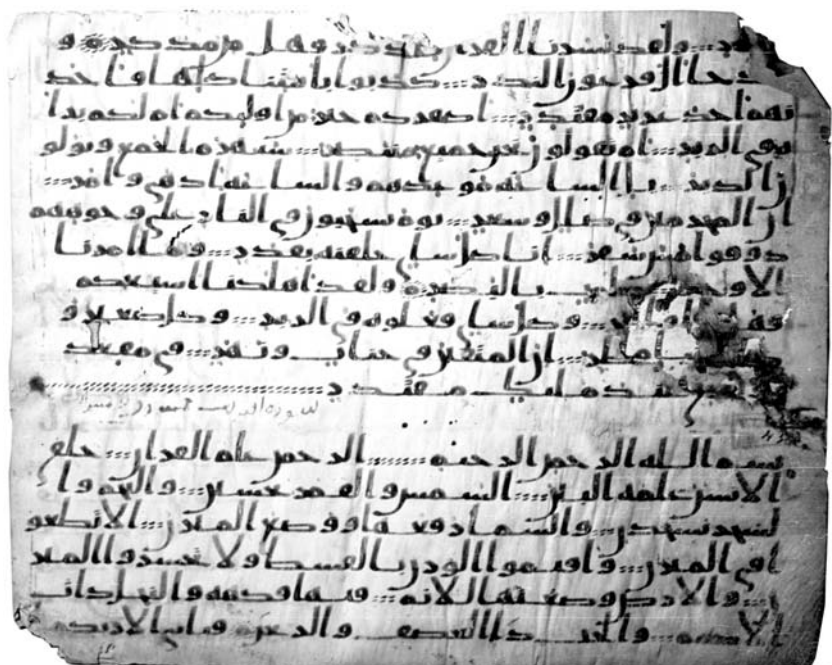 ونذر ولقد يسرنا القرن للذكر فهل من مدكر و
لقد جا ال فرعون النذر كذبوا بايتنا كلها فاخذ
نهم اخذ عزيز مقتدر اكفركم خير من اوليكم ام لكم برا
ه في الزبر ام يقولون نحن جميع منتصر سيهزم الجمع ويولو
ن الدبر بل الساعه موعدهم والساعه ادهى وامر
ان المجرمين في ضلل وسعر يوم يسحبون في النار على وجوههم
ذوقوا مس سقر انا كل شاي خلقنه بقدر وما امرنا
الا وحده كلمح بالبصر ولقد اهلكنا اشيعكم
فهل من مدكر وكل شاي فعلوه في الزبر وكل صغير و
مستطر ان المتقين في جنت ونهر في مقعد
عند مليك مقتدر
بسم الله الرحمن الرحيم الرحمن علم القران خلق
الانسن علمه البين الشمس والقمر بحسبن والنجم وا
لشجر يسجدن والسما رفعها ووضع الميزن الا تطغو
ا في الميزن واقيموا الوزن بالقسط ولا تخسروا الميز
ن والارض وضعها للانم فيها فكهه والنخل ذات
الاكمم والحب ذا العصف والريحن فباي الا ربكما